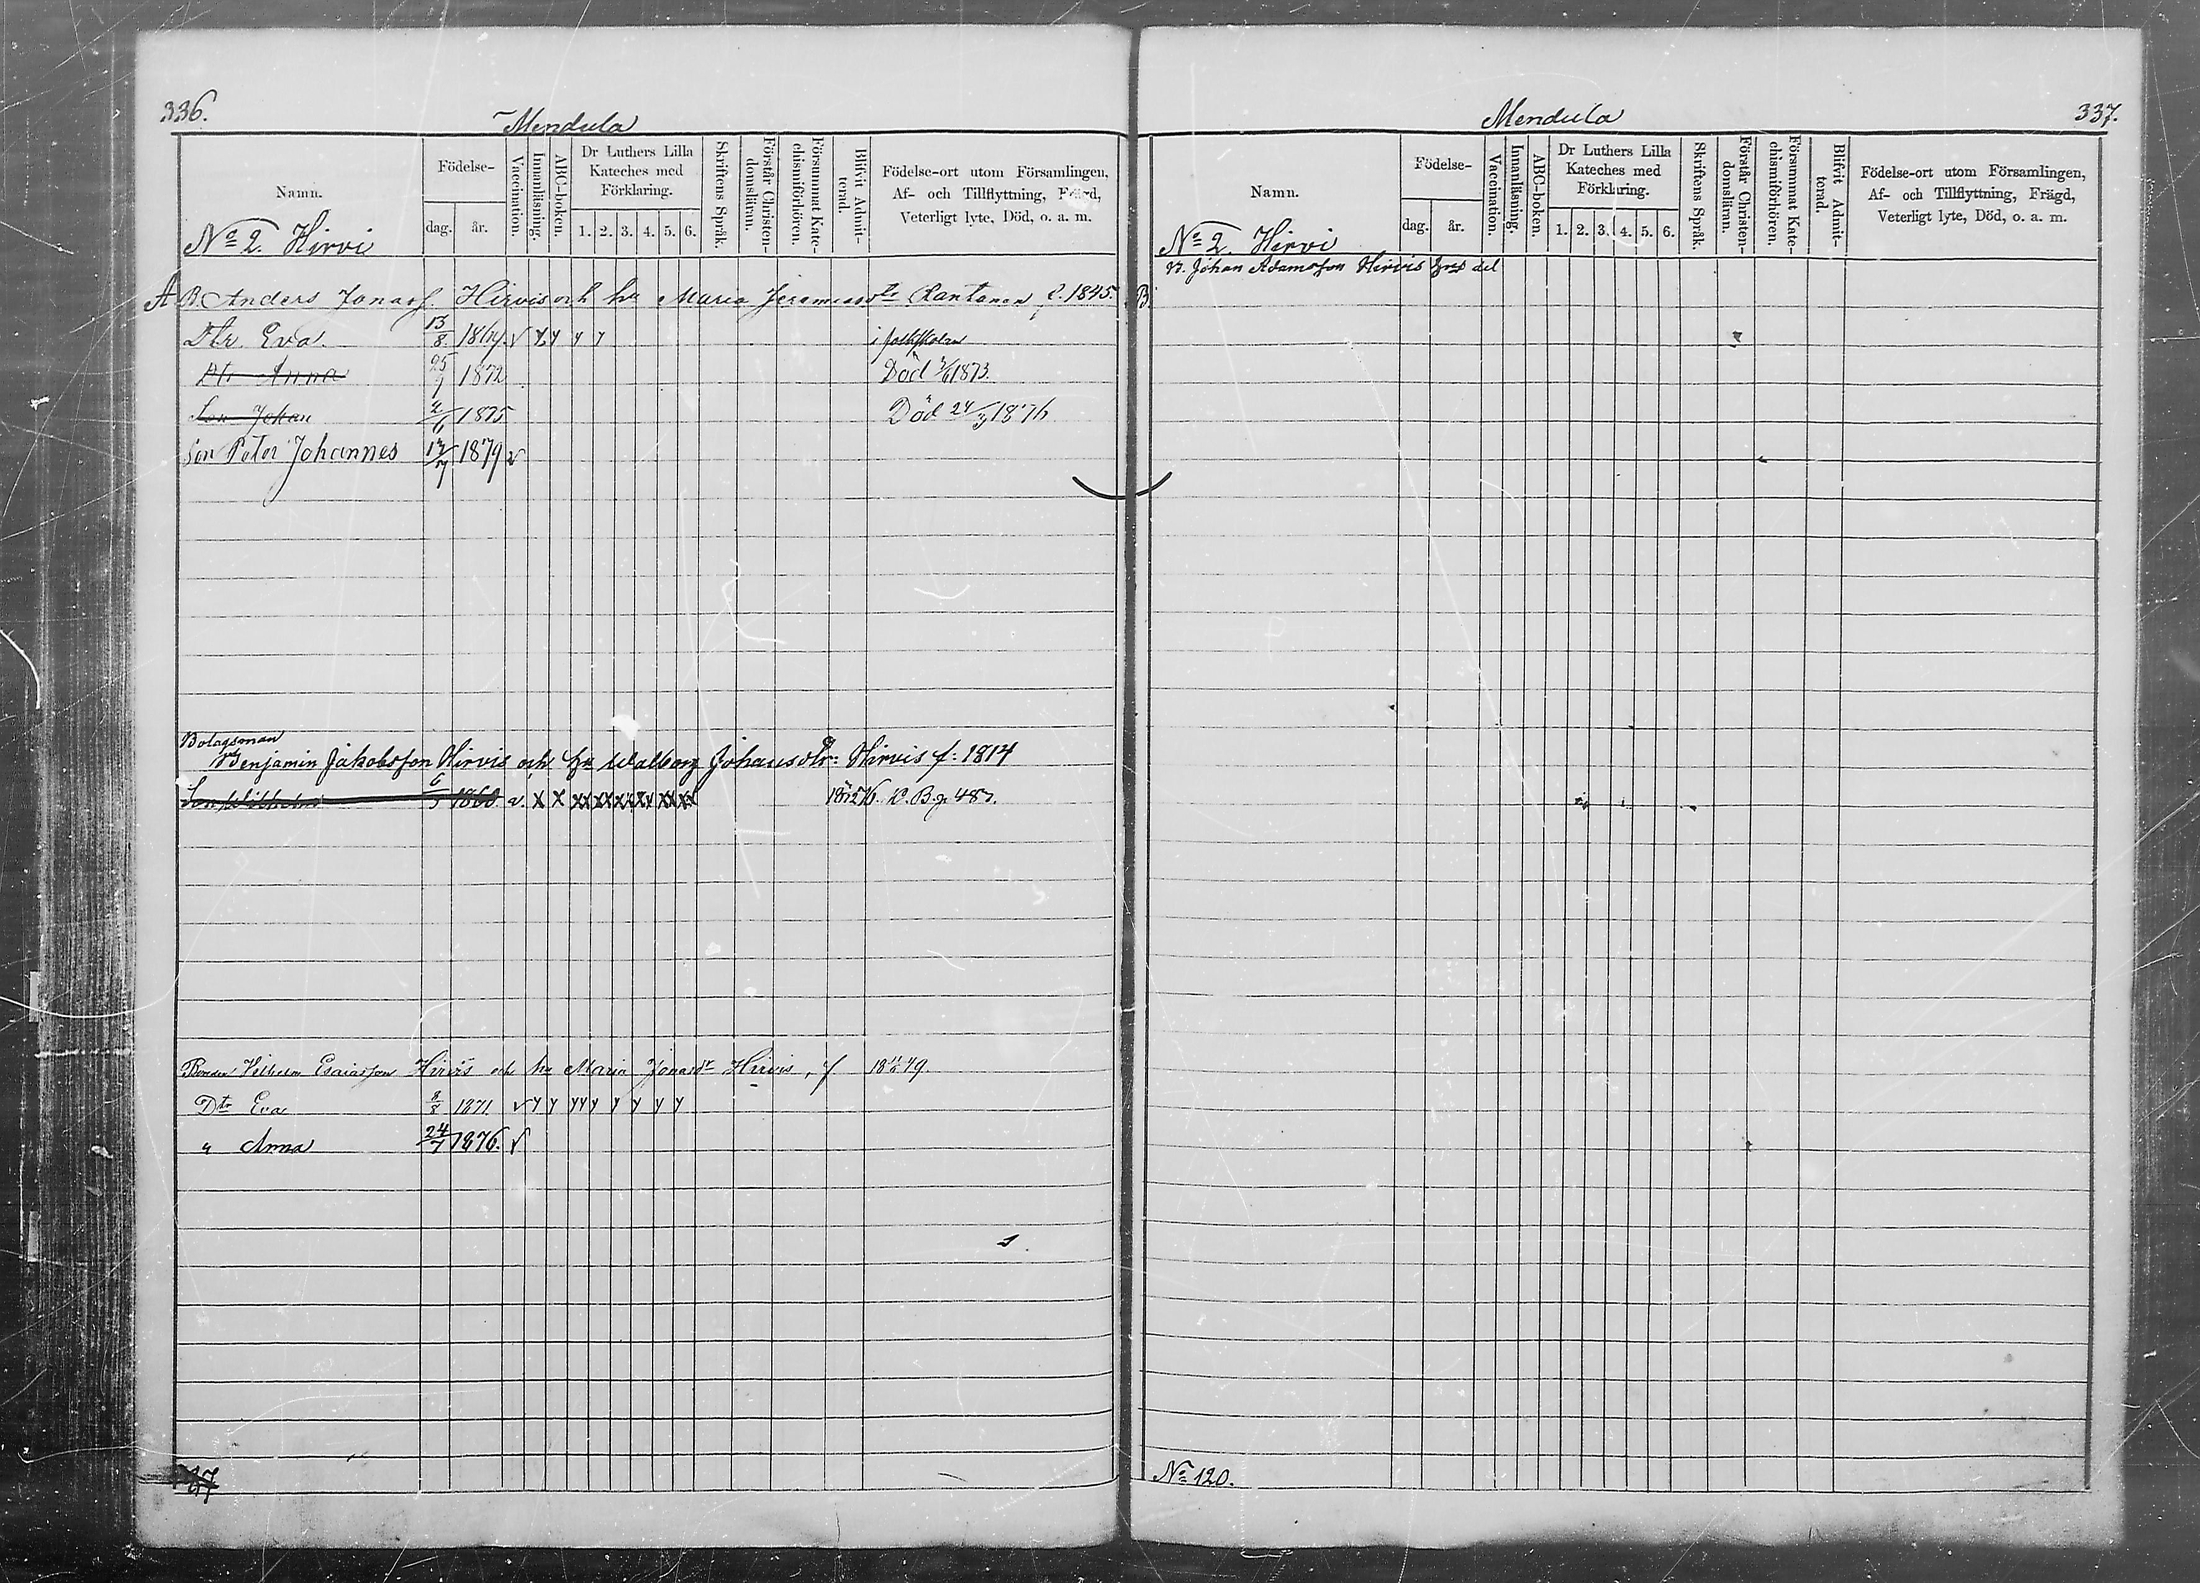 336.
Mendula
Namn.
Födelse-
dag.
år.
Vaccination.
Innanläsning.
ABC-boken.
Dr Luthers Lilla
Kateches med
Förklaring.
1. 2. 3. 4. 5. 6.
Skriftens Språk.
Förstår Christen-
domsläran.
Försummat Kate-
chismiförhören.
Blifvit Admit-
terad.
Födelse-ort utom Församlingen,
Af- och Tillflyttning, Frägd,
Veterligt lyte, Död, o. a. m.
No 2. Hirvi
A B. Anders Jonass. Hirvis och hu Maria Jeremiasdtr Rantanen f. 1845.
Dtr. Eva. 13/8 v y y y y i folkskolan
Dtr Anna 25/1 1872 Död 1873.
Son Johan 1875 Död 24/3 1876
Son Peter Johannes 1879 v
Bolagsman
Benjamin Jakobsson Hirvis och hu Walborg Johansdtr: Hirvis f: 1814
Son Wilhelm 1860 v. x x xx xx xx xx xx xx 1876 K. B. p. 487.
Bonden Vilhelm Esaiasson Hirvis och hu Maria Jonasdr Hirvis, f 49.
Dtr Eva 8/8 1871 v y y yy y y y y y
" Anna 24/7 1876. v
337.
Mendula
Namn.
Födelse-
dag.
år.
Vaccination.
Innanläsning.
ABC-boken.
Dr Luthers Lilla
Kateches med
Förklaring.
1. 2. 3. 4. 5. 6.
Skriftens Språk.
Förstår Christen-
domsläran.
Försummat Kate-
chismiförhören.
Blifvit Admit-
terad.
Födelse-ort utom Församlingen,
Af- och Tillflyttning, Frägd,
Veterligt lyte, Död, o. a. m.
No 2. Hirvi
B. Johan Adamsson Hirvis hus del
B
No 120.